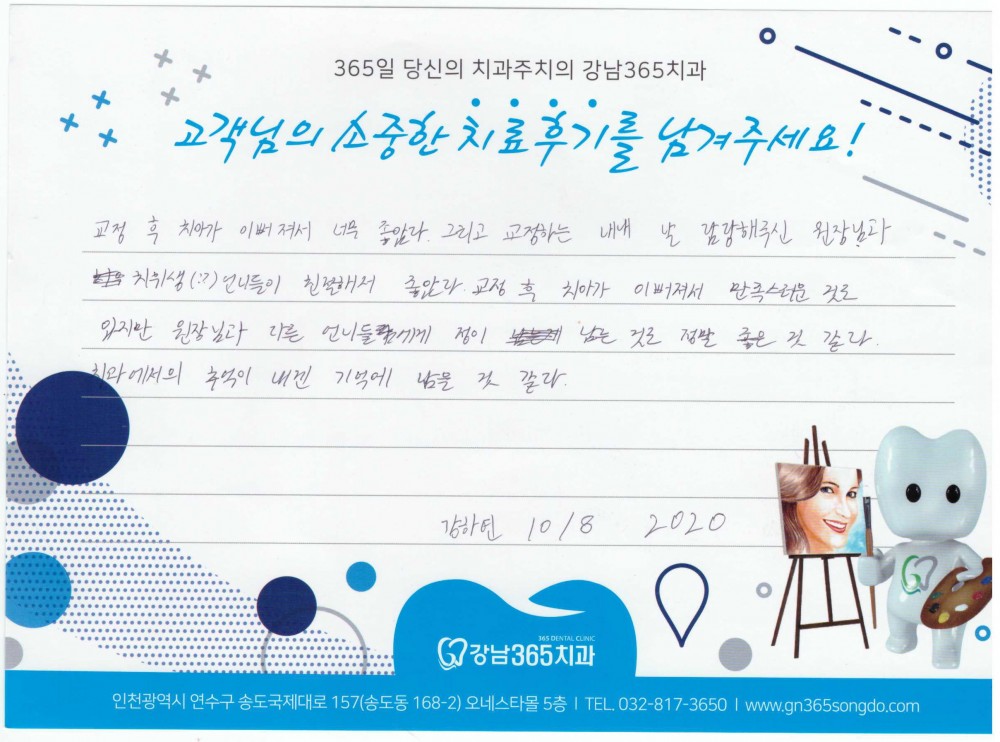 365일 당신의 치과주치의 강남365치과
고객님의 소중한 치료후기를 남겨주세요!
교정 후 치아가 이뻐져서 너무 좋았다. 그리고 교정하는 내내 날 담당해주신 원장님과
치위생(:?) 언니들이 친절해서 좋았다. 교정 후 치아가 이뻐져서 만족스러운 것도
있지만 원장님과 다른 언니들에게 정이 남는 것도 정말 좋은 것 같다.
치과에서의 추억이 내겐 기억에 남을 것 같다.
10/8 2020
365 DENTAL CLINIC
강남365치과
인천광역시 연수구 송도국제대로 157(송도동 168-2) 오네스타몰 5층 | TEL. 032-817-3650 | www.gn365songdo.com